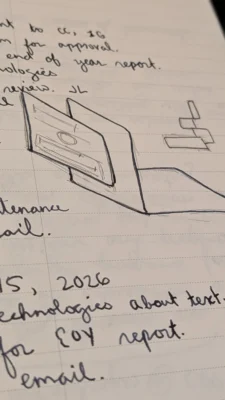 to CC, 16
for approval.
end of year report.
nologies
review. JL
tenance
ail.
15, 2026
echnologies about text.
for EOY report.
email.